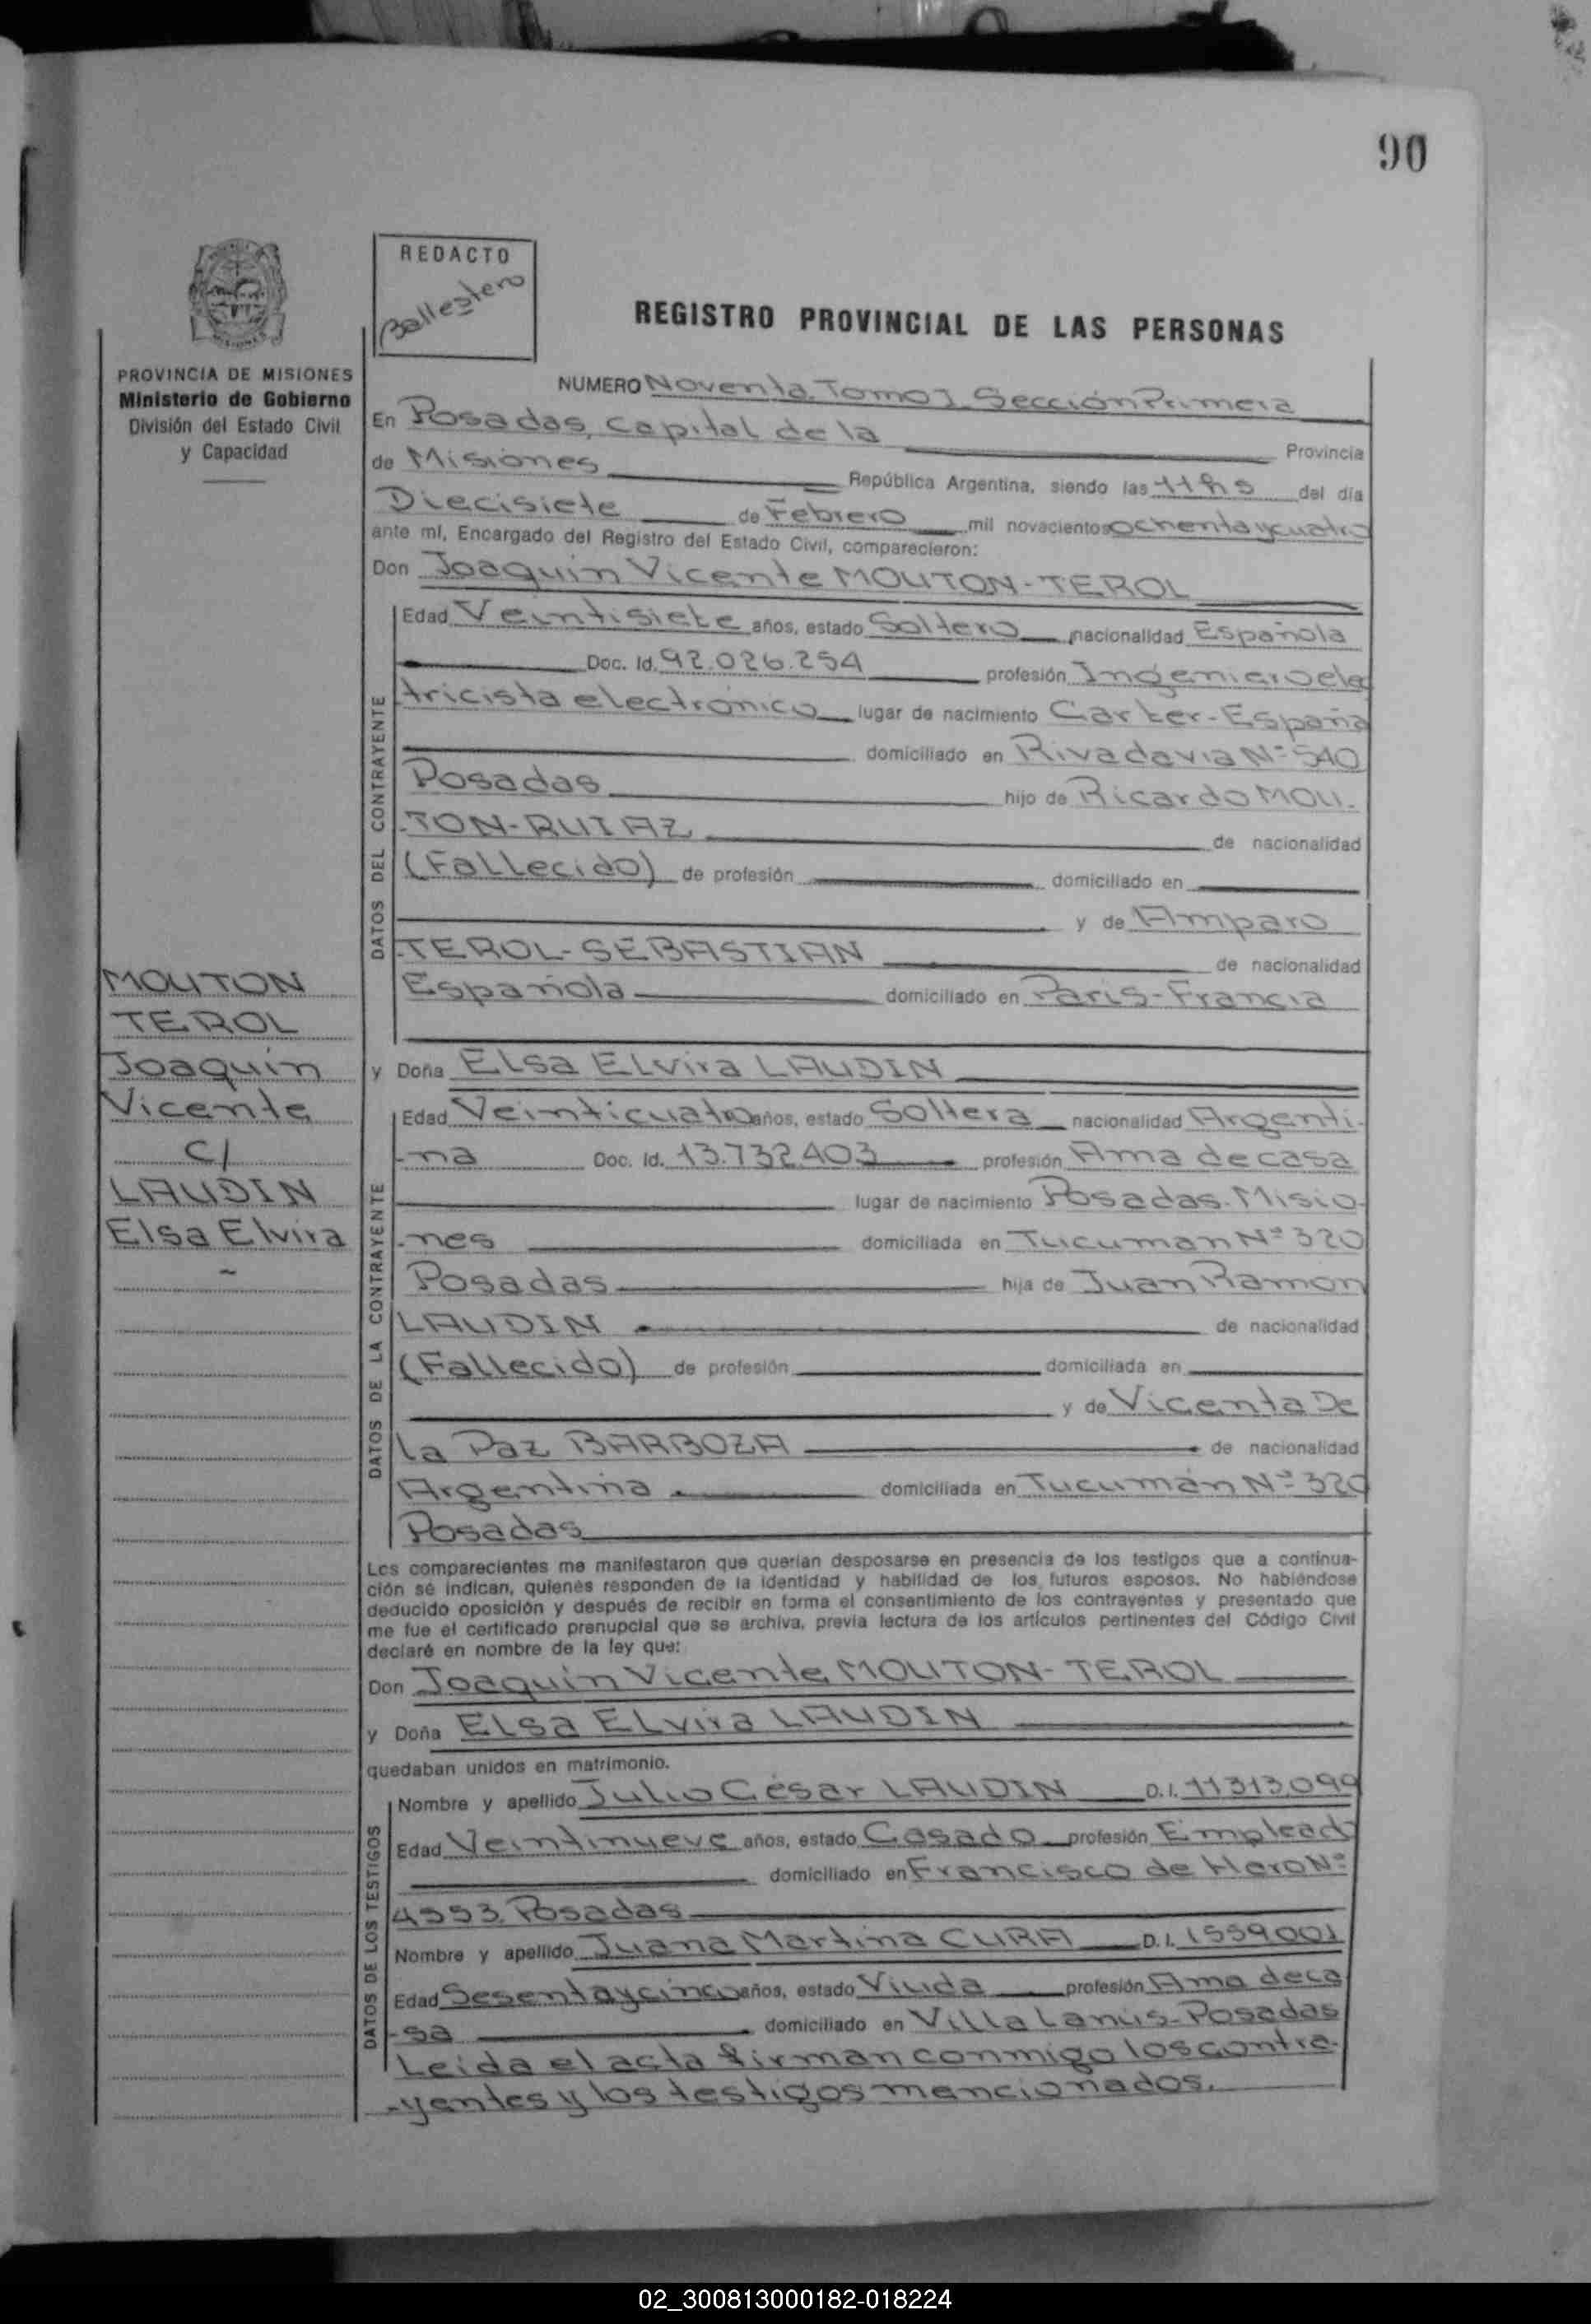 90
REDACTO
Ballestero
REGISTRO PROVINCIAL DE LAS PERSONAS
PROVINCIA DE MISIONES
Ministerio de Gobierno
División del Estado Civil
y Capacidad
NUMERO Noventa. Tomo I Sección Primera
En Posadas, Capital de la Provincia
de Misiones República Argentina, siendo las 11 hs del día
Diecisiete de Febrero mil novecientos ochenta y cuatro
ante mí, Encargado del Registro del Estado Civil, comparecieron:
Don Joaquin Vicente MOUTON-TEROL
DATOS DEL CONTRAYENTE
Edad Veintisiete años, estado Soltero nacionalidad Española
Doc. Id. 92.026.254 profesión Ingeniero elec
tricista electrónico lugar de nacimiento Carter-España
domiciliado en Rivadavia Nº 540
Posadas hijo de Ricardo MOU-
-TON-RUIAZ de nacionalidad
(Fallecido) de profesión domiciliado en
y de Amparo
-TEROL-SEBASTIAN de nacionalidad
Española domiciliado en Paris-Francia
MOUTON
TEROL
Joaquin
Vicente
C/
LAUDIN
Elsa Elvira
y Doña Elsa Elvira LAUDIN
DATOS DE LA CONTRAYENTE
Edad Veinticuatro años, estado Soltera nacionalidad Argenti-
-na Doc. Id. 13.732.403 profesión Ama de casa
lugar de nacimiento Posadas-Misio-
-nes domiciliada en Tucuman Nº 320
Posadas hija de Juan Ramon
LAUDIN de nacionalidad
(Fallecido) de profesión domiciliada en
y de Vicenta De
la Paz BARBOZA de nacionalidad
Argentina domiciliada en Tucumán Nº 320
Posadas
Los comparecientes me manifestaron que querían desposarse en presencia de los testigos que a continua-
ción se indican, quienes responden de la identidad y habilidad de los futuros esposos. No habiéndose
deducido oposición y después de recibir en forma el consentimiento de los contrayentes y presentado que
me fue el certificado prenupcial que se archiva, previa lectura de los artículos pertinentes del Código Civil
declaré en nombre de la ley que:
Don Joaquin Vicente MOUTON-TEROL
y Doña Elsa Elvira LAUDIN
quedaban unidos en matrimonio.
DATOS DE LOS TESTIGOS
Nombre y apellido Julio César LAUDIN D.I. 11313,099
Edad Veintinueve años, estado Casado profesión Empleado
domiciliado en Francisco de Haro Nº
4553. Posadas
Nombre y apellido Juana Martina CURA D.I. 1559001
Edad Sesenta y cinco años, estado Viuda profesión Ama de ca
-sa domiciliado en Villa Lanús-Posadas
Leida el acta firman conmigo los contra-
-yentes y los testigos mencionados.
02_300813000182-018224